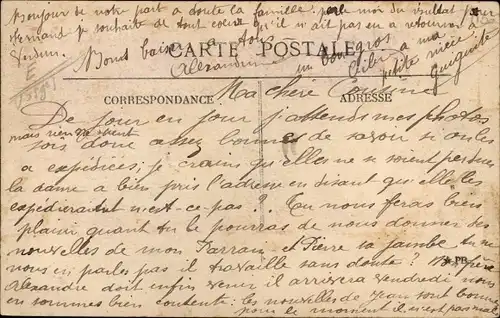 Bonjour de notre part a doute la famille; parle moi du résultat pour
Fernand je souhaite de tout coeur qu'il n'ait pas eu a retourner à
Verdun. Bons baisers a tous
Alexandrine un bon gros
bibi a ma
petite nièce
Guiguitte
CARTE POSTALE
CORRESPONDANCE
ADRESSE
Ma chère Cousine
De jour en jour j'attends mes photos
mais rien ne vient
sois donc assez bonne de savoir si on les
a expédiées; je crains qu'elles ne soient perdues
la dame a bien pris l'adresse en disant qu'elle les
expédieraient n'est-ce pas? Tu nous feras bien
plaisir quant tu le pourras de nous donner des
nouvelles de mon Parrain et Pierre sa jambe tu ne
nous en parles pas il travaille sans doute? Mr père
Alexandre doit enfin venir il arrivera vendredi nous
en sommes bien contents: les nouvelles de Jean sont bonnes
pour le moment il n'est pas mal